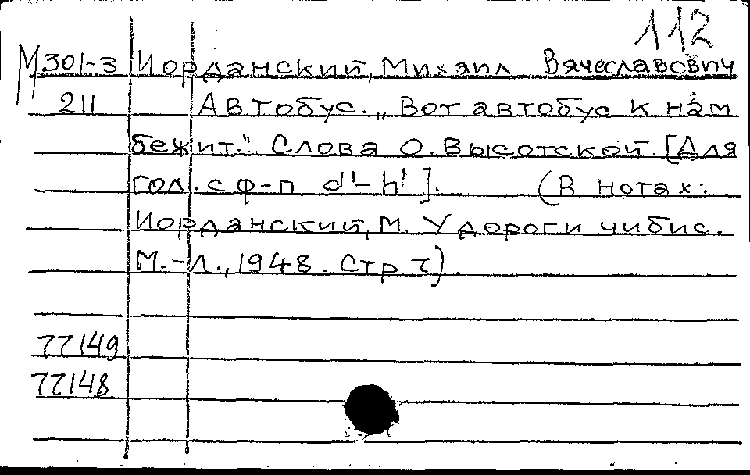 112
М301-3 Иорданский, Михаил Вячеславович
211 Автобус. „Вот автобус к нам
бежит." Слова О. Высотской. [Для
гол. с ф-п d¹-h¹]. (В нотах:
Иорданский, М. У дороги чибис.
М.-Л., 1948. Стр 7)
77149
77148